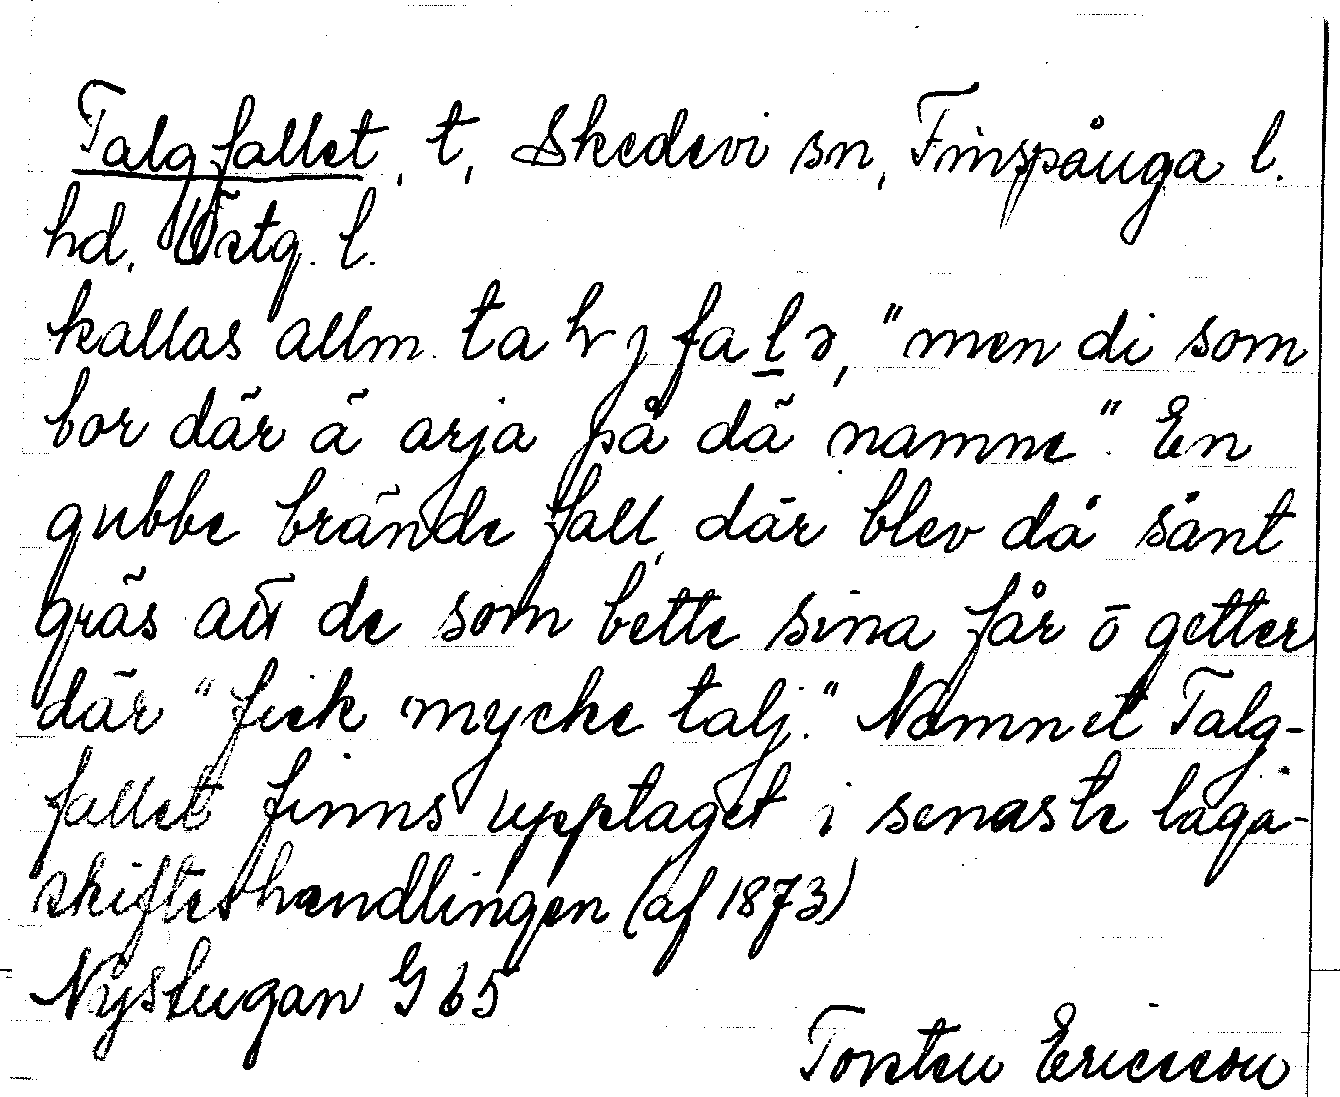 Talgfallet, t, Skedevi sn, Finspånga l.
hd. Östg. l.
kallas allm. ta h j fa l ə, "men di som
bor där ä arja på dä namne". En
gubbe brände fall, där blev då sånt
gräs att de som bette sina får ō getter
där "fick mycke talj." Namnet Talg-
fallet finns upptaget i senaste laga-
skifteshandlingen (af 1873)
Nystugan G 65
Torsten Ericsson